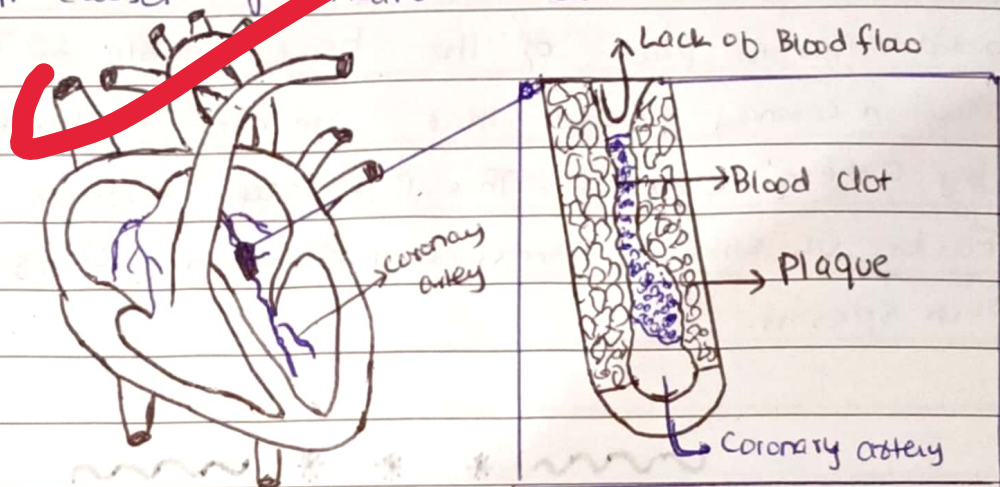 Lack ob Blood flao
Blood clot
Plaque
coronary
artey
Coronary artery